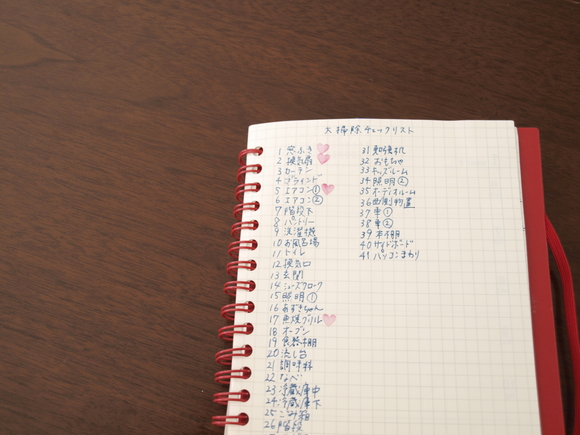 大掃除チェックリスト
1 窓ふき
2 換気扇
3 カーテン
4 ブラインド
5 エアコン①
6 エアコン②
7 階段下
8 パントリー
9 洗濯機
10 お風呂場
11 トイレ
12 換気口
13 玄関
14 シューズクローク
15 照明①
16 あずきちゃん
17 魚焼グリル
18 オーブン
19 食器棚
20 流し台
21 調味料
22 なべ
23 冷蔵庫中
24 冷蔵庫下
25 ごみ箱
26 階段
31 勉強机
32 おもちゃ
33 キッズルーム
34 照明②
35 オーディオルーム
36 西側物置
37 車①
38 車②
39 本棚
40 サイドボード
41 パソコンまわり